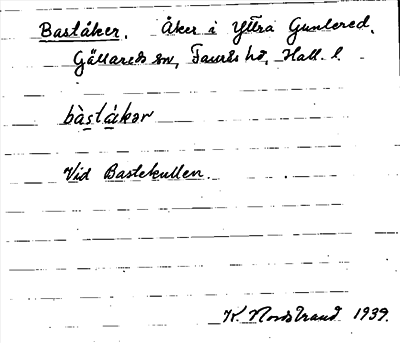 Baståker. Åker i Yttra Gunnered,
Gällareds sn, Faurås hd, Hall. l.
bàståkər
Vid Bastekullen.
K. Nordstrand 1939.